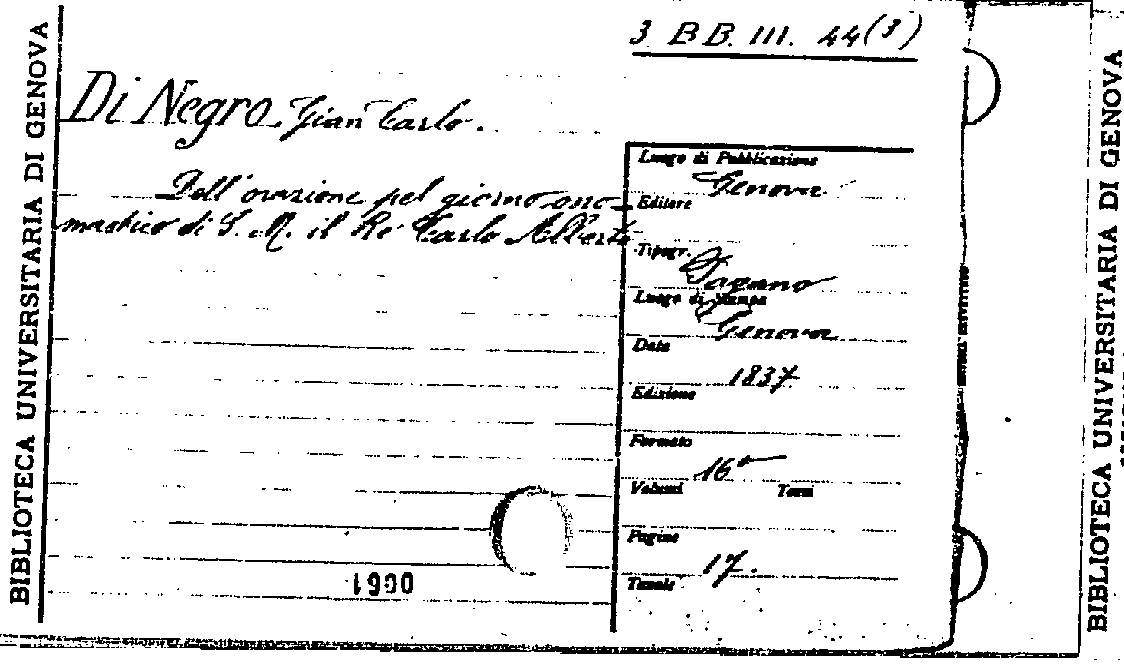 BIBLIOTECA UNIVERSITARIA DI GENOVA
3 BB. III. 44(3)
Di Negro Gian Carlo.
Dell'orazione pel giorno ono-
mastico di S. M. il Re Carlo Alberto
Luogo di Pubblicazione
Genova
Editore
Tipogr.
Pagano
Luogo di Stampa
Genova
Data
1837
Edizione
Formato
16°
Volumi Tomi
Pagine
17.
Tavole
0661
BIBLIOTECA UNIVERSITARIA DI GENOVA